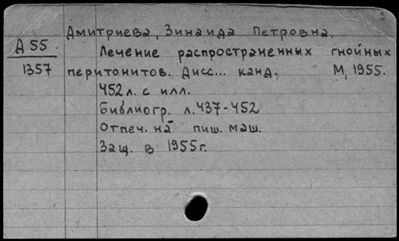 Дмитриева, Зинаида Петровна.
Д 55
1357
Лечение распространенных гнойных
перитонитов. Дисс... канд. М, 1955.
452 л. с илл.
Библиогр. л. 437-452
Отпеч. на пиш. маш.
Защ. в 1955г.